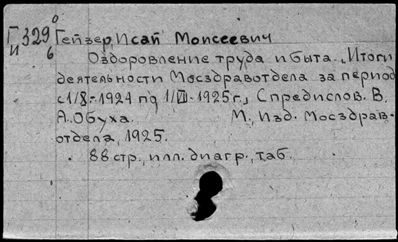 Г 329 0/6 Гейзер, Исай Моисеевич
И
Оздоровление труда и быта. „Итоги
деятельности Мосздравотдела за период
с 1/8-1924 по 1/VII-1925 г., С предислов. В.
А. Обуха. М., Изд. Мосздрав-
отдела, 1925.
88 стр., илл. диагр., таб.